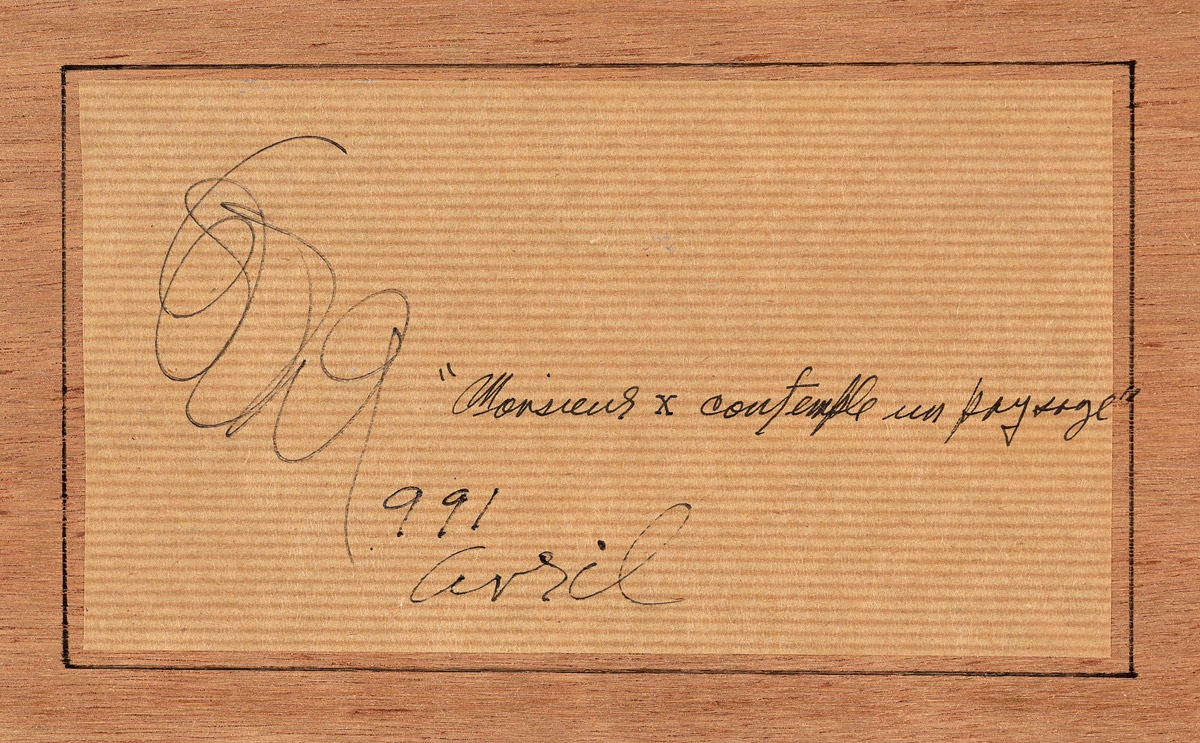 "Monsieur x contemple un paysage"
991
avril